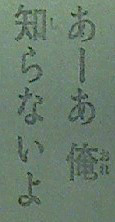 あーあ 俺
知らないよ